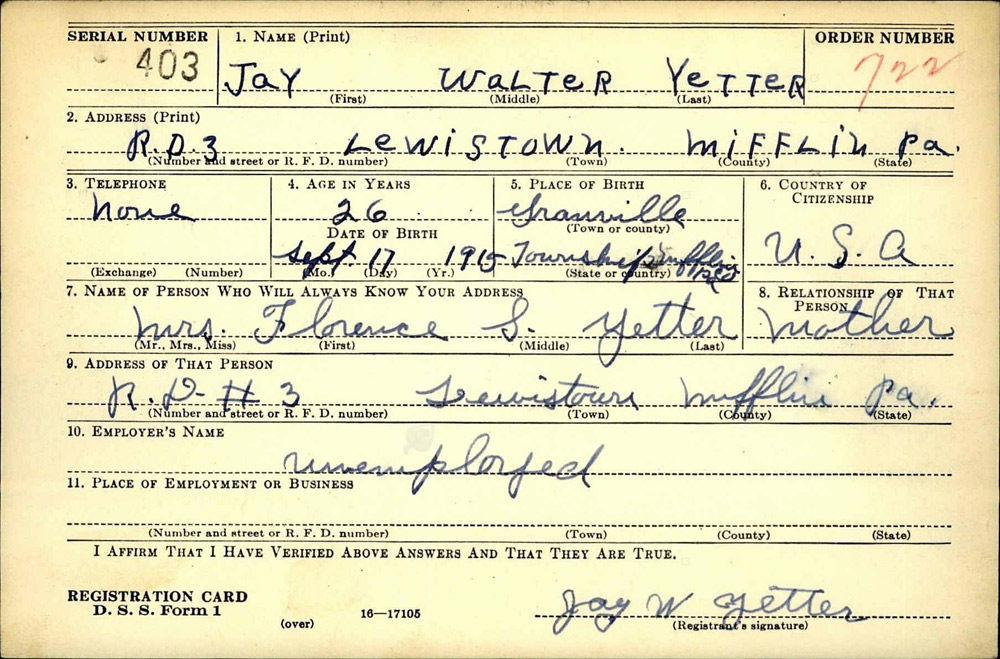 SERIAL NUMBER 1. NAME (Print) ORDER NUMBER
403 JaY WaLTeR YeTTeR 722
(First) (Middle) (Last)
2. ADDRESS (Print)
R.D.3 LewisTown. MiFFLin Pa.
(Number and street or R. F. D. number) (Town) (County) (State)
3. TELEPHONE 4. AGE IN YEARS 5. PLACE OF BIRTH 6. COUNTRY OF
CITIZENSHIP
None 26 Granville
(Town or county)
DATE OF BIRTH
Sept. 17 1915 Township Mifflin U. S. A
Pa
(Exchange) (Number) (Mo.) (Day) (Yr.) (State or country)
7. NAME OF PERSON WHO WILL ALWAYS KNOW YOUR ADDRESS 8. RELATIONSHIP OF THAT
PERSON
Mrs. Florence S. Yetter Mother
(Mr., Mrs., Miss) (First) (Middle) (Last)
9. ADDRESS OF THAT PERSON
R.D # 3 Lewistown Mifflin Pa.
(Number and street or R. F. D. number) (Town) (County) (State)
10. EMPLOYER'S NAME
unemployed
11. PLACE OF EMPLOYMENT OR BUSINESS
(Number and street or R. F. D. number) (Town) (County) (State)
I AFFIRM THAT I HAVE VERIFIED ABOVE ANSWERS AND THAT THEY ARE TRUE.
REGISTRATION CARD
D. S. S. Form 1 16—17105 Jay W Yetter
(over) (Registrant's signature)